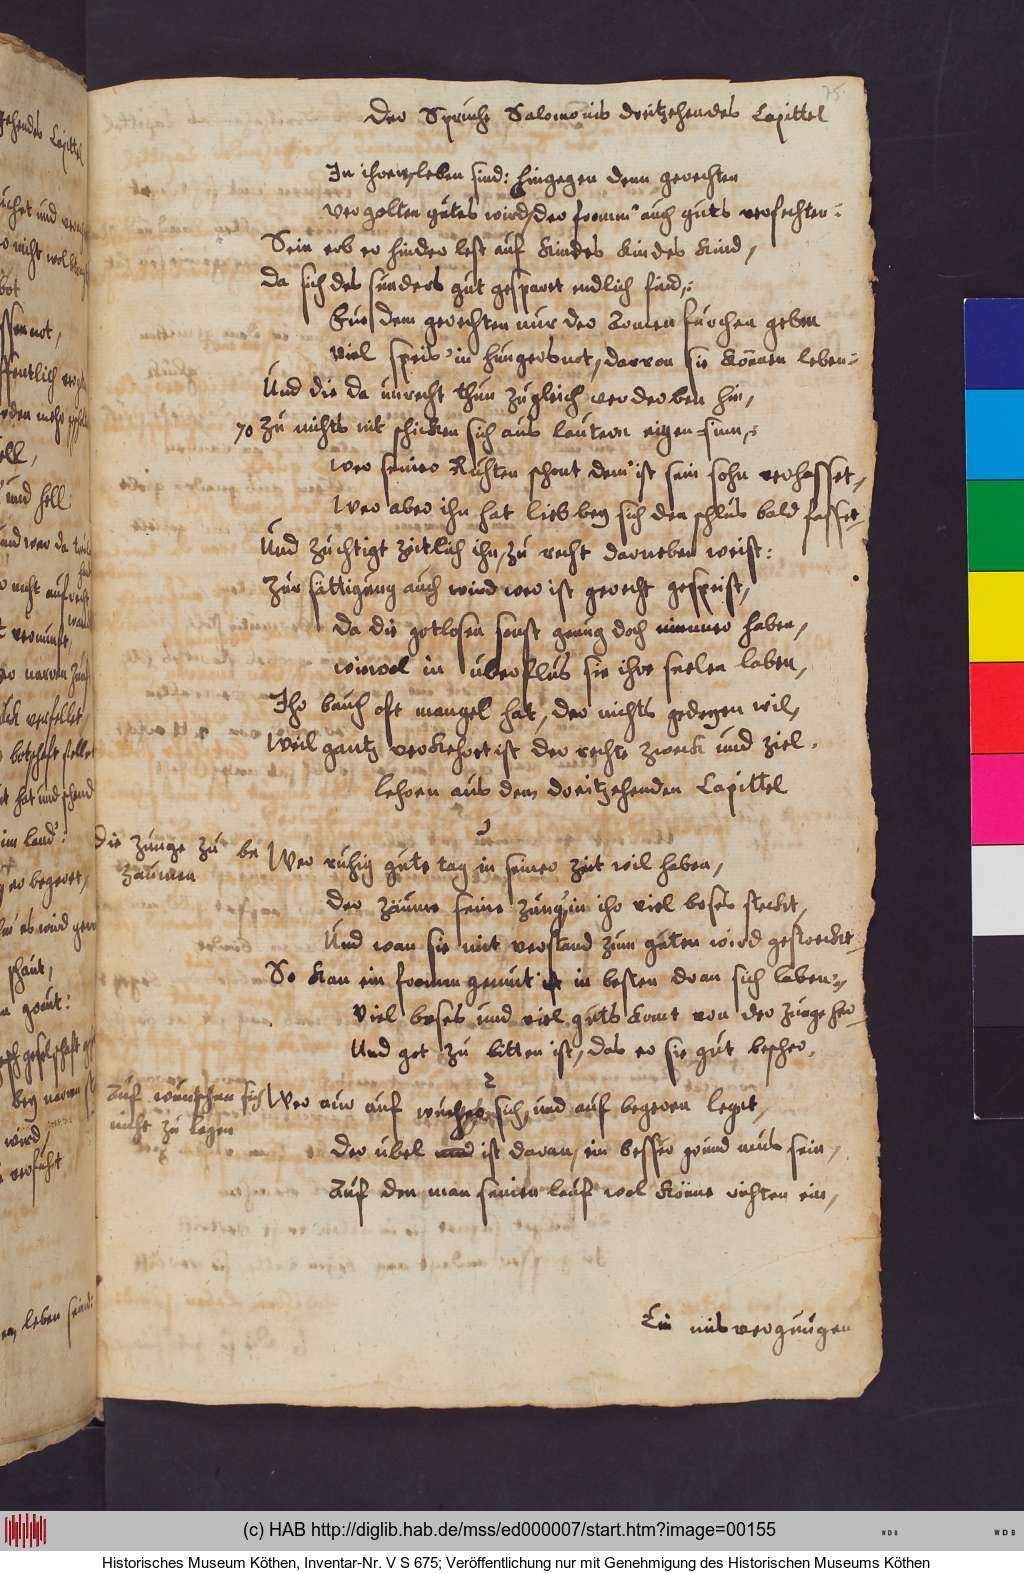 75.
Der Spruche Salomonis dreitzehendes Capittel
In ihrem leben sind: hingegen denn gerechten
vergolten gutes wird, der fromm' auch guts verfechten:
Sein erb er hinder lest auf kindes kindes kind,
da sich des sunders gut gesparet endlich find,:
Gur dem gerechten nur der Armen furchen geben
viel speis' in hungersnot, darvon sie können leben:
Und die da unrecht thun zugleich verderben hin,
70 zu nichts nit schicken sich aus lautern eigen-sinn,:
Wer seiner Ruhten schont dem ist sein sohn verhasset,
Wer aber ihn hat lieb bey sich den schlus bald fasset
Und zuchtigt zeitlich ihn, zu recht darneben weist:
Zur sättigung auch wird wer ist gerecht gespeist,
da die gotlosen sonst genug doch nimmer haben,
wiewol in uberflus sie ihre seelen laben,
Ihr bauch oft mangel hat, der nichts gedeyen wil,
Weil gantz verkehret ist der rechte zweck und ziel.
lehren aus dem dreitzehenden Capittel
1
Die zunge zu be
zäumen
Wer ruhig gute tag in seiner zeit wil haben,
Der zäume seine zung, in ihr viel boses steckt,
Und wan sie mit verstand zum guten wird gestreckt
So kan ein fromm gemut in besten dran sich laben:,
Viel boses und viel guts komt von der zunge her
Und got zu bitten ist, das er sie gut bescher.
2
Auf wuntschen sich
nicht zu legen
Wer nur auf wuntschen sich, und auf begeren legt,
Der ubel ist daran, ein besser grund mus sein,
Auf den man seinen lauf wol könne richten ein,
Ein misvergnugen
(c) HAB http://diglib.hab.de/mss/ed000007/start.htm?image=00155
WDB
WDB
Historisches Museum Köthen, Inventar-Nr. V S 675; Veröffentlichung nur mit Genehmigung des Historischen Museums Köthen